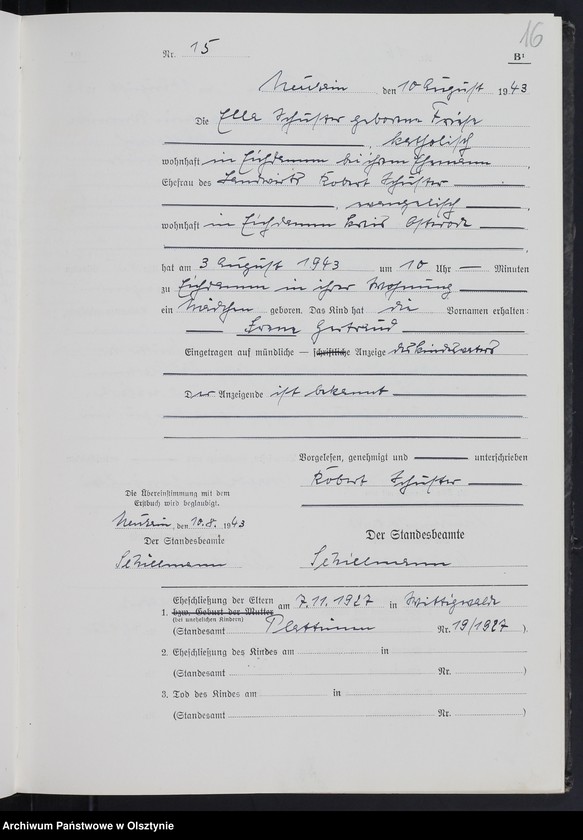 16
Nr. 15
B¹
den 10 August 1943
Die Ella Schuster geborene Friese
, katholisch
wohnhaft in Eichdamm bei ihrem Ehemann
Ehefrau des Landwirts Robert Schuster
, evangelisch ,
wohnhaft in Eichdamm Kreis Osterode
,
hat am 3 August 1943 um 10 Uhr — Minuten
zu Eichdamm in ihrer Wohnung
ein Mädchen geboren. Das Kind hat die Vornamen erhalten:
Gertraud
Eingetragen auf mündliche — schriftliche Anzeige des Kindesvaters
Der Anzeigende ist bekannt
Vorgelesen, genehmigt und — unterschrieben
Robert Schuster
Die Übereinstimmung mit dem
Erstbuch wird beglaubigt.
, den 10.8. 1943
Der Standesbeamte
Schillmann
Der Standesbeamte
Schillmann
Eheschließung der Eltern
1. bzw. Geburt der Mutter am 7.11.1927 in Wittigwalde
(bei unehelichen Kindern)
(Standesamt Plattainen Nr. 19/1927 ).
2. Eheschließung des Kindes am in
(Standesamt Nr. )
3. Tod des Kindes am in
(Standesamt Nr. )
Archiwum Państwowe w Olsztynie